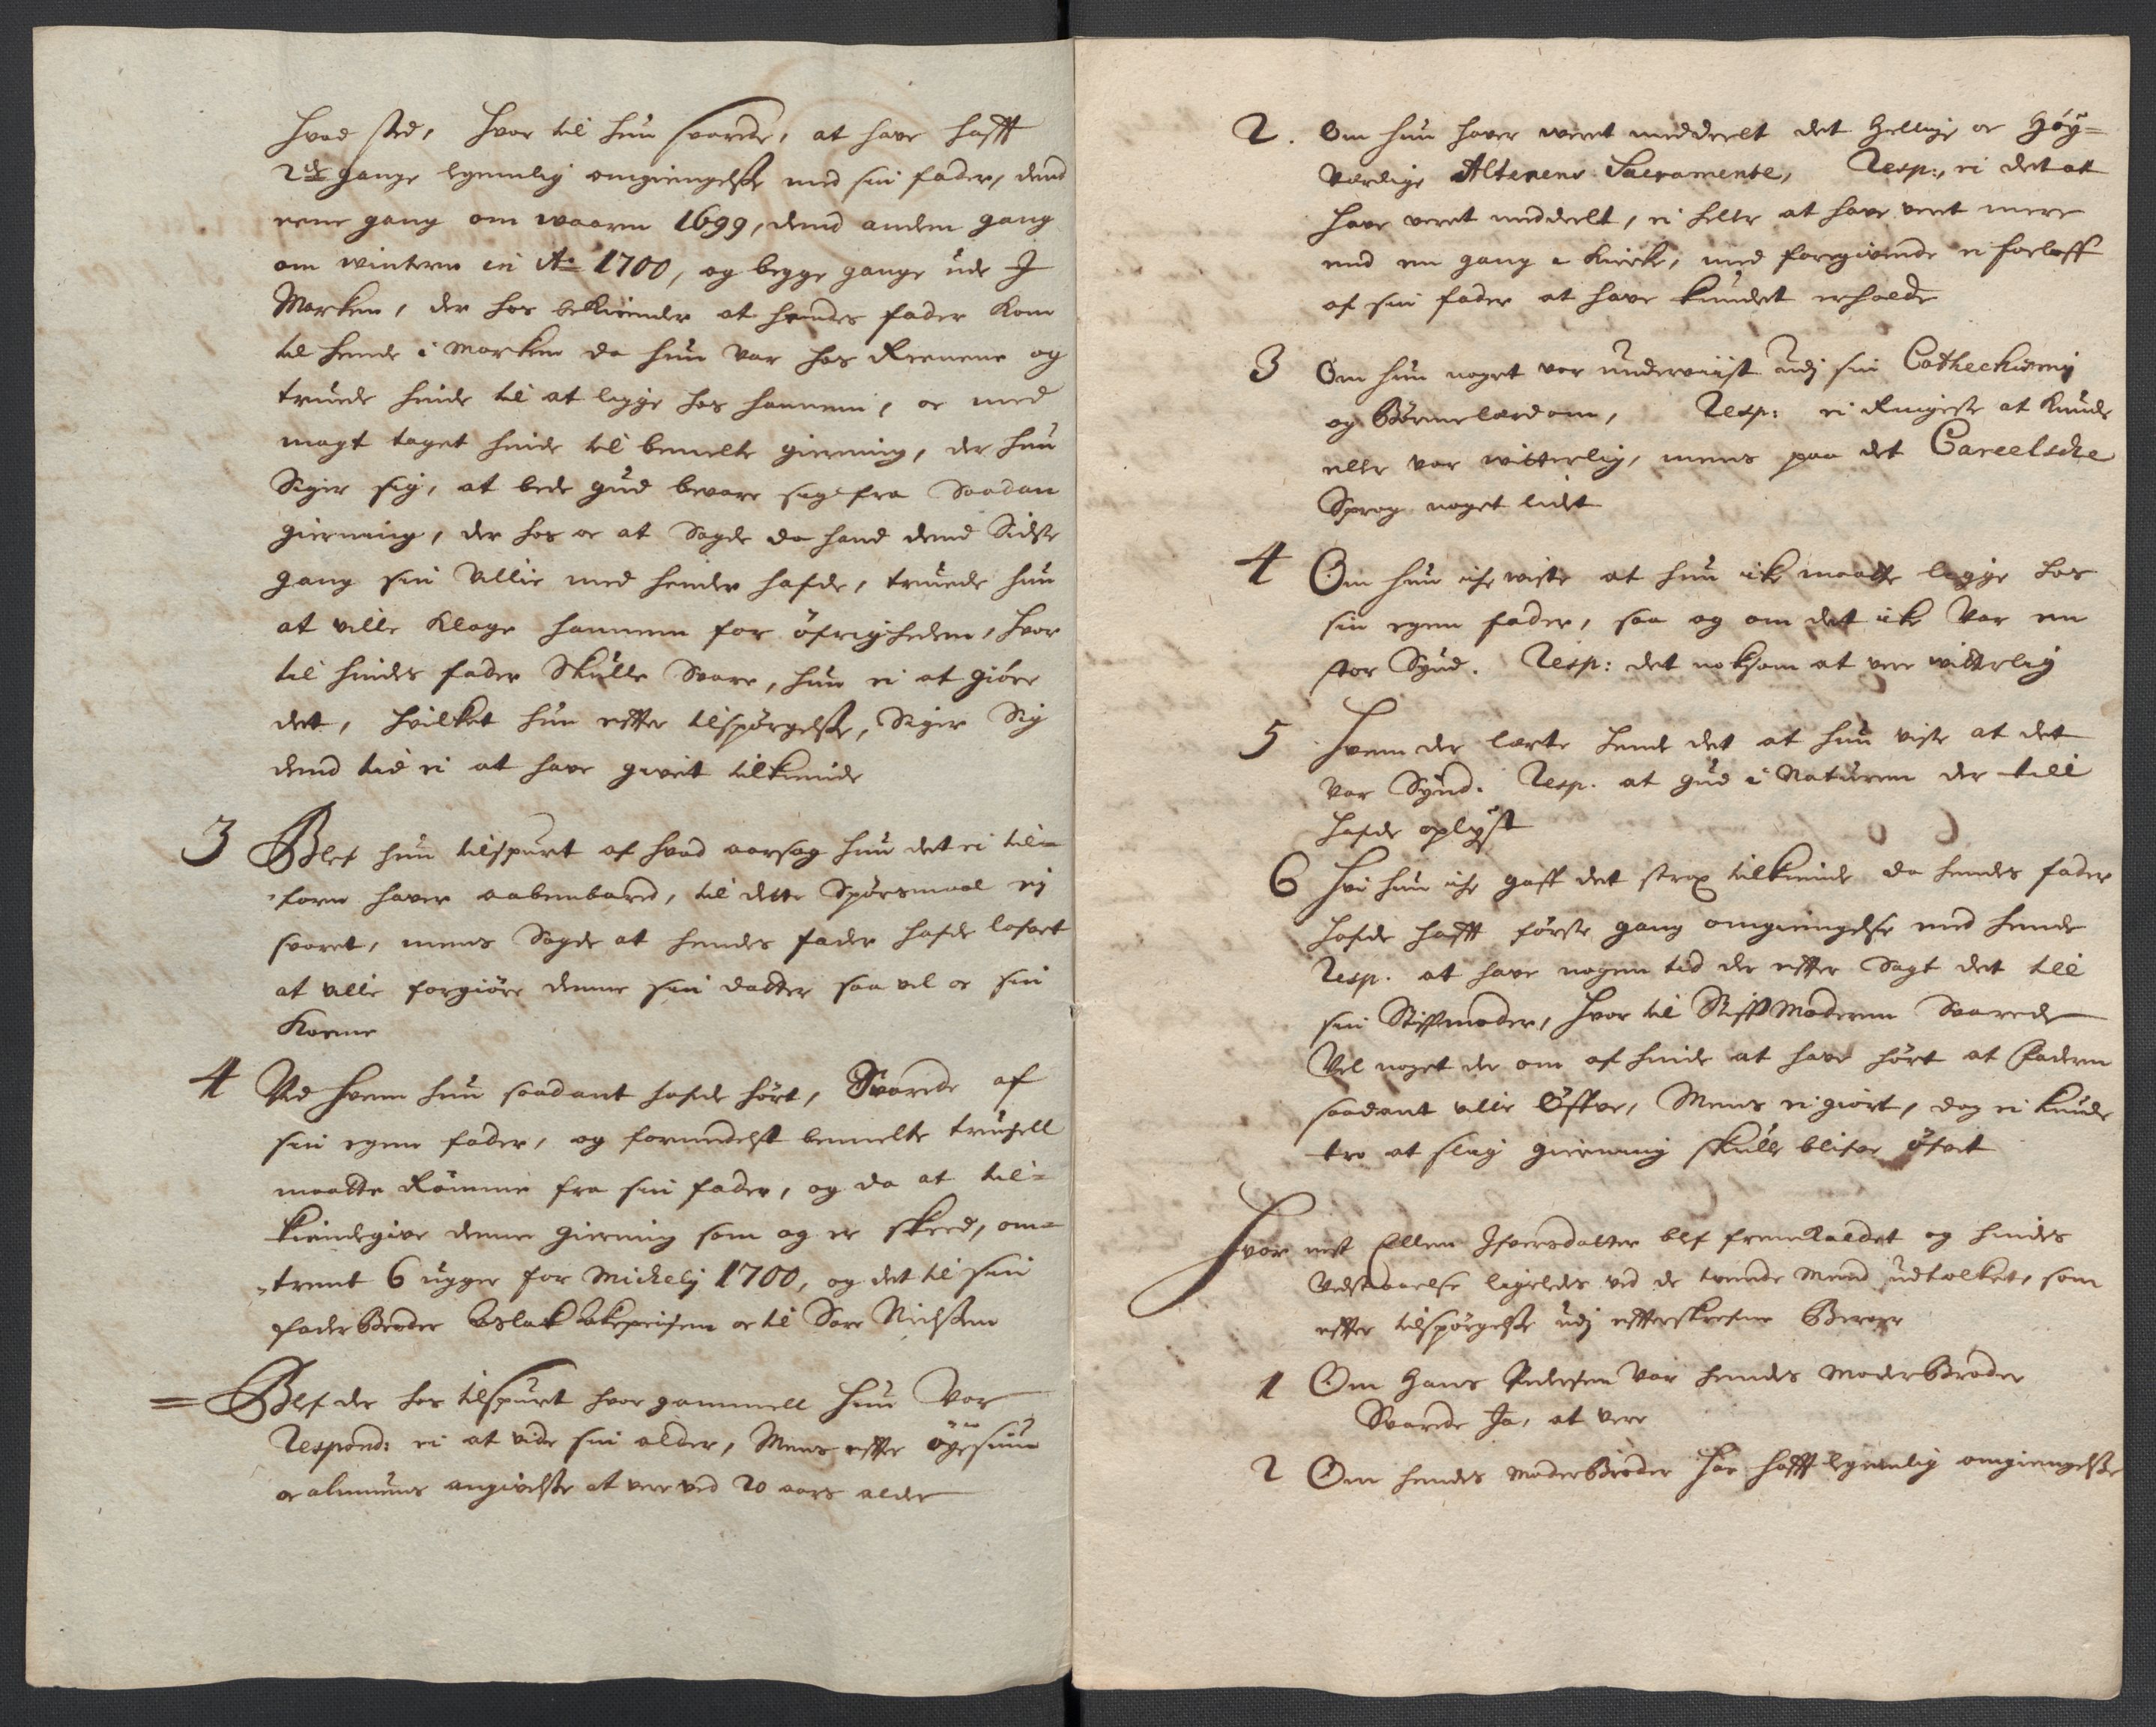 hvad sted, hvor til hun svarede, at have hafft
2de gange legemlig omgiengelsse med sin fader, dend
eene gang om waaren 1699, dend anden gang
om winteren in Ao 1700, og begge gange ude I
Marken, der hos bekiender at hendes fader kom
til hende i marken da hun var hos Reenene og
truede hende til at ligge hos hannem, oc med
magt taget hende til bemelte gierning, der hun
Siger sig, at bede gud bevare sig fra saadan
gierning, der hos oc at Sagde da hand dend Sidste
gang sin Villie med hender hafde, truede hun
at ville klage hannem for öfrigheden, hvor
til hindes fader Skulle Svare, hun ei at giöre
det, hvilket hun effter tilspörgelsse, Siger Sig
dend tid ei at have givet tilkiende
3 Blef hun tilspurt af hvad aarsag hun det ei til=
forn haver aabenbared, til dette Spörsmaal ej
svaret, mens Sagde at hendes fader hafde lofvet
at ville forgiöre denne sin datter saa vel oc sin
Koene
4 Ved hvem hun saadant hafde hört, Svarede af
sin egen fader, og formedelst bemelte trusell
maatte Römme fra sin fader, og da at til=
kiendegive denne gierning som og er skeed, om=
trent 6 ugger for Michelj 1700, og det til sin
faderBroder Aslak og til Sare Nielssen
= Blef der hos tilspurt hvor gammell hun Var
Respond: ei at vide sin alder, Mens effter öyesiun
oc almuens angivelsse at vere ved 20 aars alder
2. Om hun haver weret meddeelt det Hellige oc Höy=
værdige Alterens Sacramente, Resp:, ei det at
have veret meddeelt, ei heller at have veret mere
end en gang i Kircke, med foregivende ei forloff
af sin fader at have kundet erholde
3 Om hun noget var underviist udj sin Cathechismj
og Börnelærdom, Resp: ei Ringeste at kunde
eller var witterlig, mens paa det Careelsche
Sprog noget lidet
4 Om hun iche wiste at hun ick maatte ligge hos
sin egen fader, saa og om det ick Var en
stor Synd. Resp: det noksom at vere witterlig
5 Hvem der lærte hende det at hun viste at det
var Synd. Resp. at gud i Naturen der till
hafde oplyst
6 Hvi hun iche gaff det strax tilkiende da hendes fader
hafde hafft förste gang omgiengelse med hende
Resp. at have nogen tid der effter Sagt det till
sin Stiffmoder, hvor til StiffModeren Svarede
Vel noget der om af hende at have hört at Faderen
saadant ville öffve, Mens ei giort, dog ei kunde
tro at slig gierning skulle blifve öfvet
Hvor nest Ellen Ifversdatter blef fremkaldet og hindes
Vedstaaelse ligeledes ved de tvende Mend udtolket, som
effter tilspörgelsse udj effterskrefne Beroer
1 Om Hans Pedersen var hendes ModerBroder
Svarede Ja, at vere
2 Om hendes ModerBroder har hafft legemlig omgiengelsse